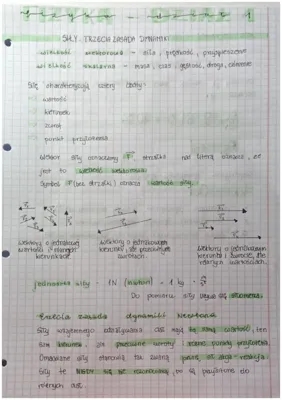 fizyka - dział 1
SIŁY. TRZECIA ZASADA DYNAMIKI
wielkość wektorowa - siła, prędkość, przyspieszenie
wielkość skalarna - masa, czas, gęstość, droga,
Siłę charakteryzują cztery cechy:
- wartość
- kierunek
- zwrot
- punkt przyłożenia
Wektor siły oznaczamy F, strzałka nad literą oznacza, że
jest to wielkość wektorowa.
Symbol F (bez strzałki) oznacza wartość siły.
Wektory o jednakowej wartości i różnych kierunkach
Wektory o jednakowym kierunku, ale przeciwnych zwrotach.
Wektory o jednakowym kierunku i zwrocie, ale różnych wartościach.
Jednostka siły - 1N (niuton) = 1 kg ·
Do pomiaru siły służy siłomierz.
Trzecia zasada dynamiki Newtona
Siły wzajemnego oddziaływania ciał mają tę samą wartość, ten
sam kierunek, ale przeciwne zwroty i różne punkty przyłożenia.
Omawiane siły stanowią tak zwaną parę sił akcja - reakcja
Siły te NIGDY SIĘ NIE RÓWNOWAŻĄ, bo są przyłożone do
różnych ciał.